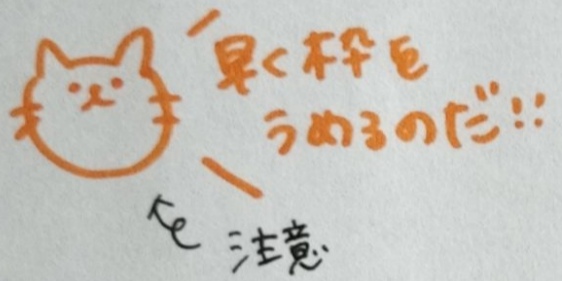 早く枠を
うめるのだ!!
注意